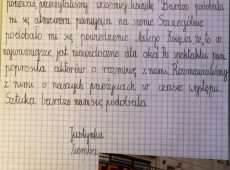 ponieważ przeczytaliśmy wcześniej książkę. Bardzo podobała
mi się atmosfera panująca na scenie. Szczególnie
podobało mi się powiedzenie Małego Księcia, że to co
najważniejsze jest niewidoczne dla oka. Po spektaklu pani
poprosiła aktorów o rozmowę z nami. Rozmawialiśmy
z nimi o naszych przeżyciach w czasie występu.
Sztuka bardzo mi się podobała.
Justynka
Ziemba